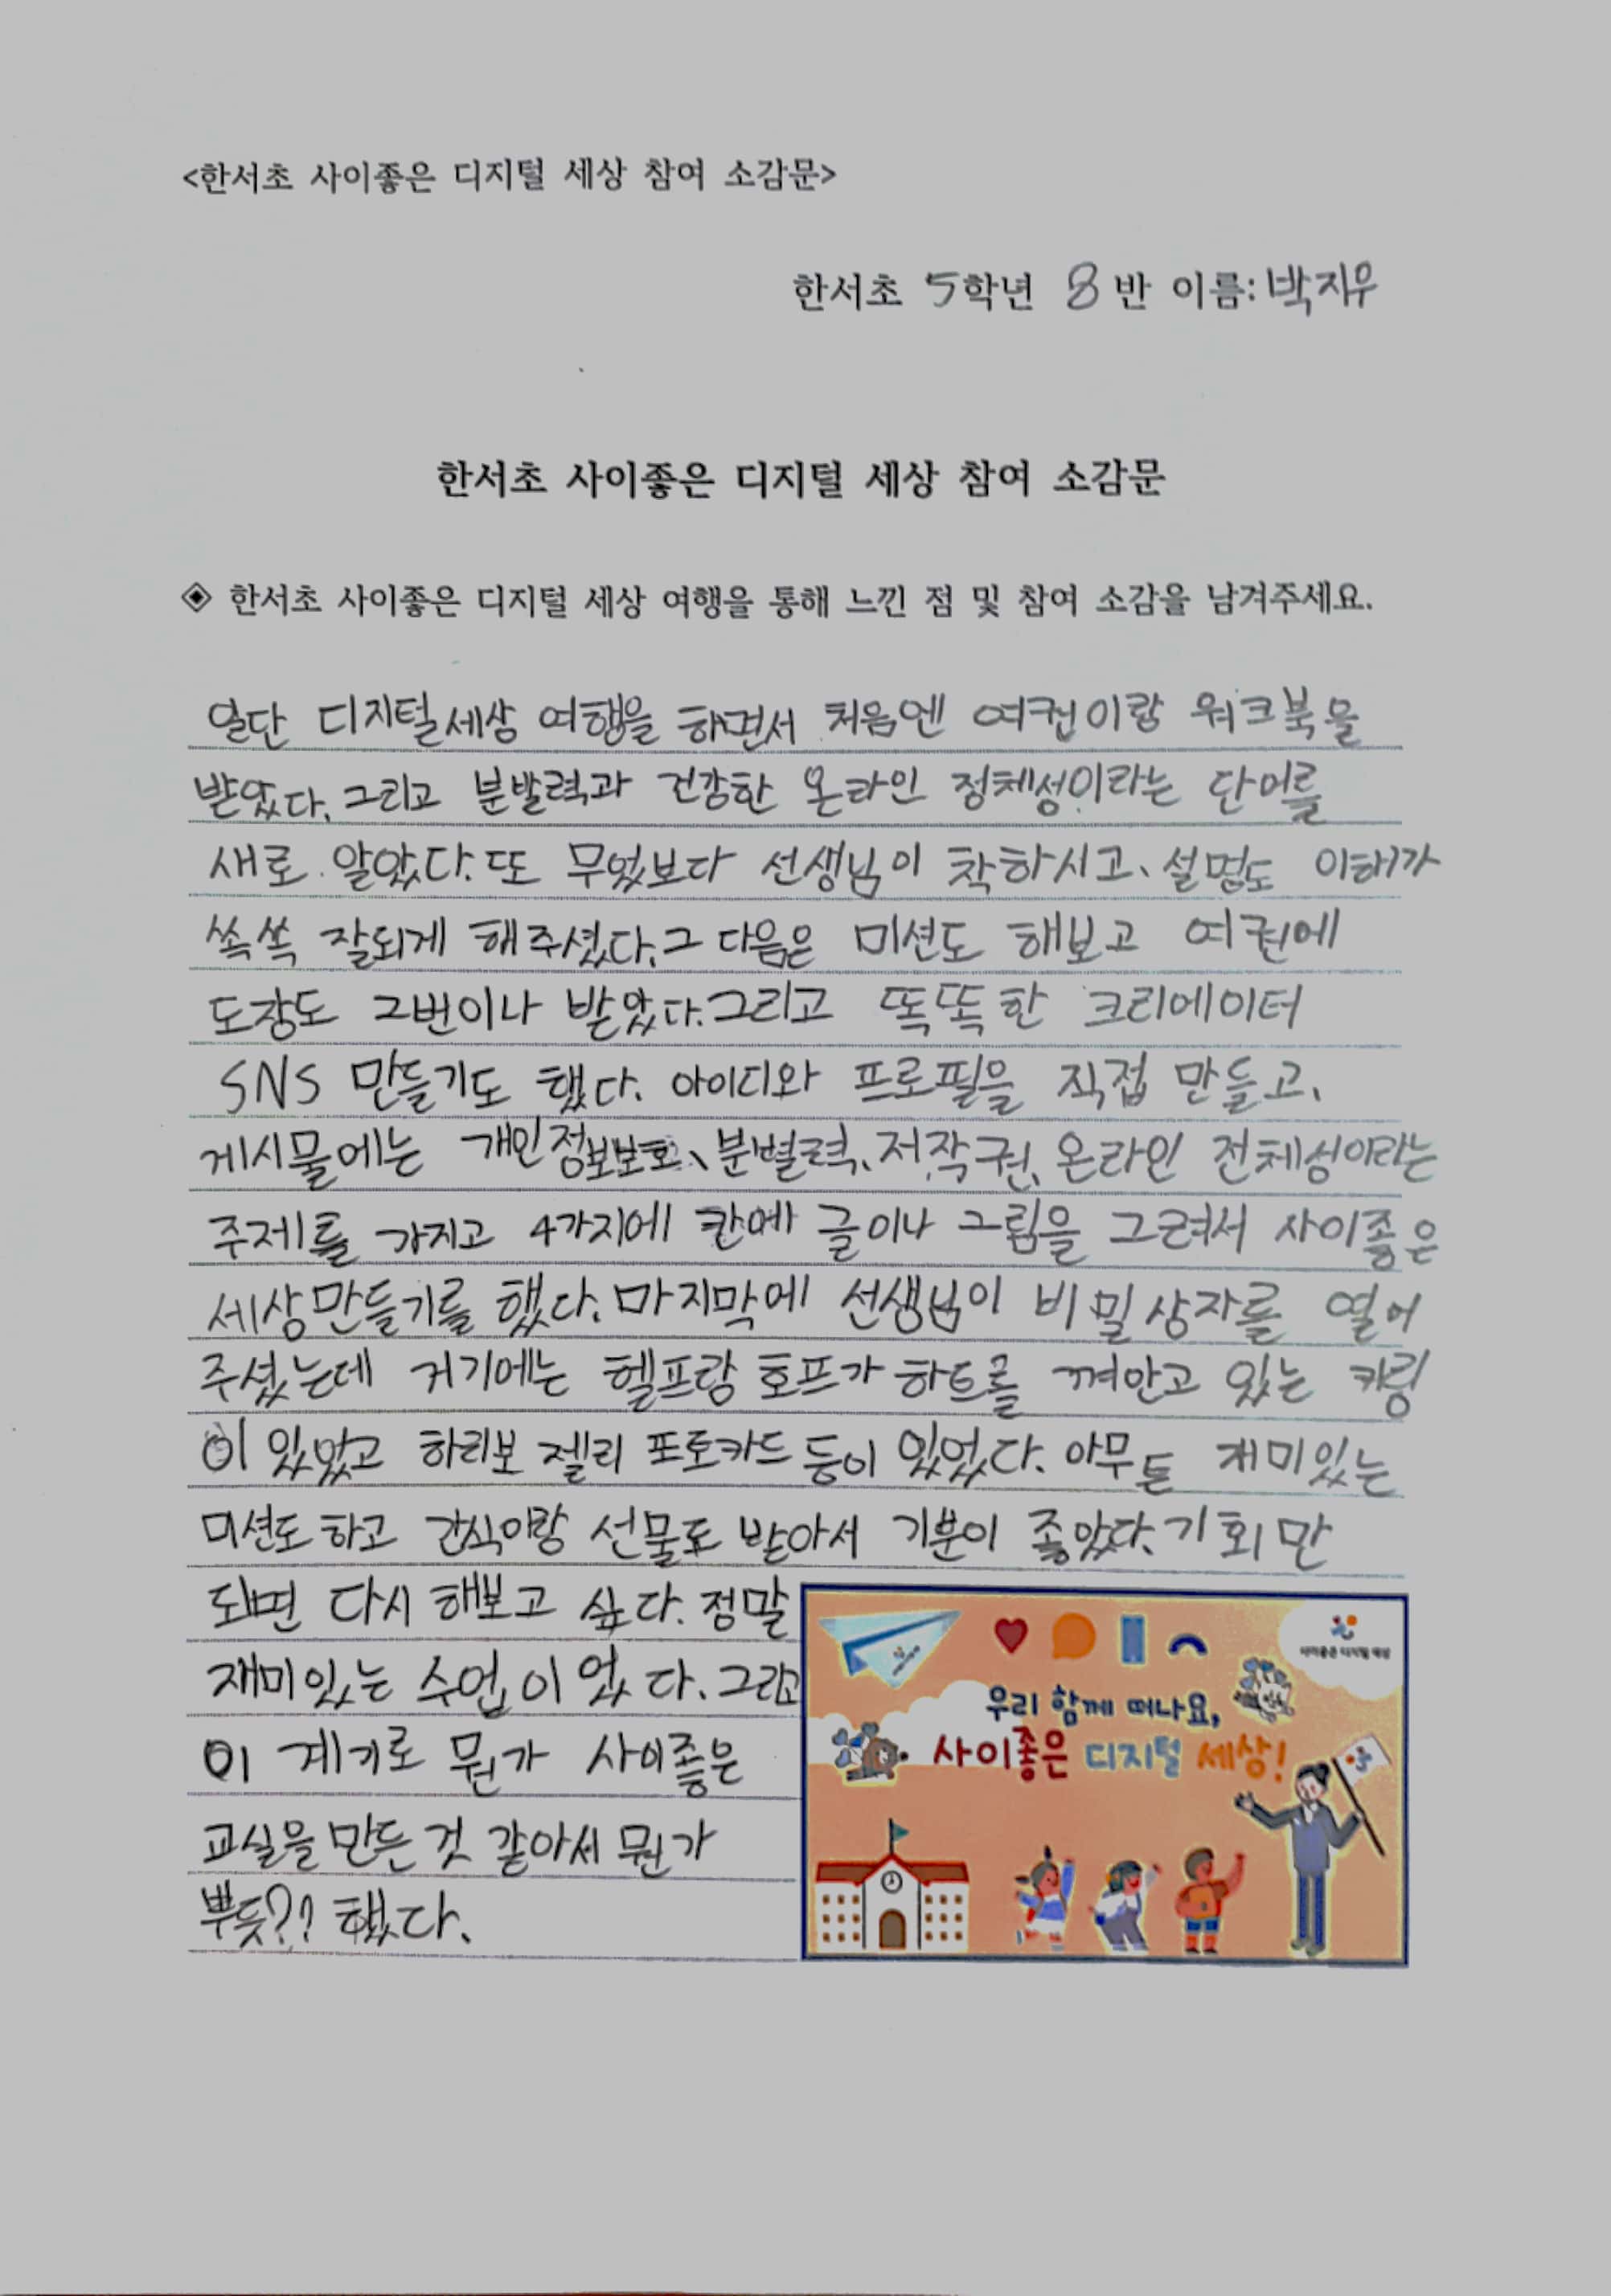 <한서초 사이좋은 디지털 세상 참여 소감문>
한서초 5학년 8반 이름: 박지우
한서초 사이좋은 디지털 세상 참여 소감문
◈ 한서초 사이좋은 디지털 세상 여행을 통해 느낀 점 및 참여 소감을 남겨주세요.
일단 디지털세상 여행을 하면서 처음엔 여권이랑 워크북을
받았다. 그리고 분별력과 건강한 온라인 정체성이라는 단어를
새로 알았다. 또 무엇보다 선생님이 착하시고、설명도 이해가
쏙쏙 잘되게 해주셨다. 그 다음은 미션도 해보고 여권에
도장도 2번이나 받았다. 그리고 똑똑한 크리에이터
SNS 만들기도 했다. 아이디와 프로필을 직접 만들고、
게시물에는 개인정보보호、분별력、저작권、온라인 전체성이라는
주제를 가지고 4가지에 칸에 글이나 그림을 그려서 사이좋은
세상만들기를 했다. 마지막에 선생님이 비밀상자를 열어
주셨는데 거기에는 헬프랑 호프가 하트를 껴안고 있는 키링
이 있었고 하리보 젤리 포토카드 등이 있었다. 아무튼 재미있는
미션도 하고 간식이랑 선물도 받아서 기분이 좋았다. 기회만
되면 다시 해보고 싶다. 정말
재미있는 수업이었다. 그리고
이 계기로 뭔가 사이좋은
교실을 만든 것 같아서 뭔가
뿌듯?? 했다.
사이좋은 디지털 세상
우리 함께 떠나요,
사이좋은 디지털 세상!